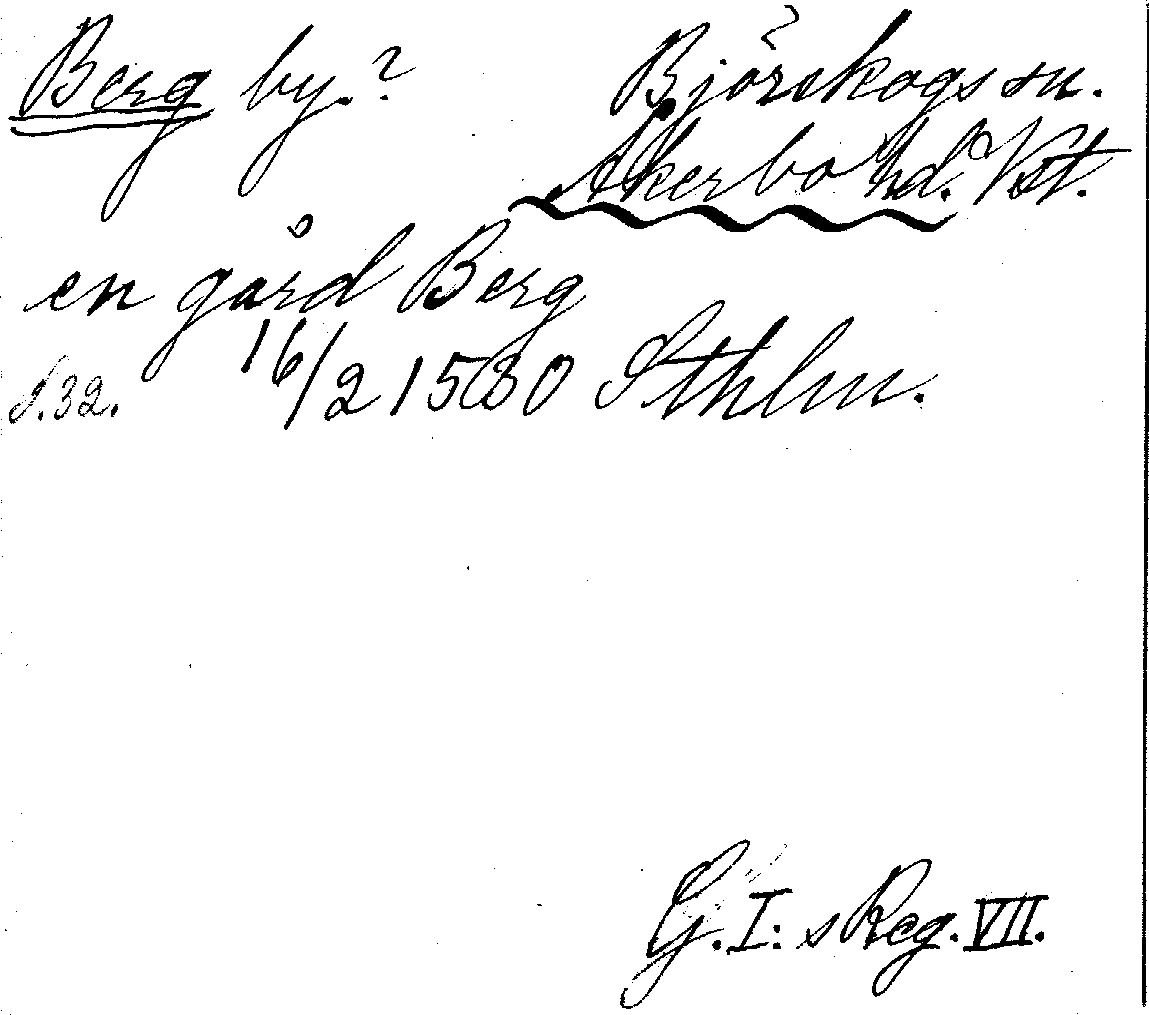 Berg by.? Björskogs sn.
Åkerbo hd. Vst.
en gård Berg
S.32. 16/2 1530 Sthlm.
G.I:s Reg. VII.